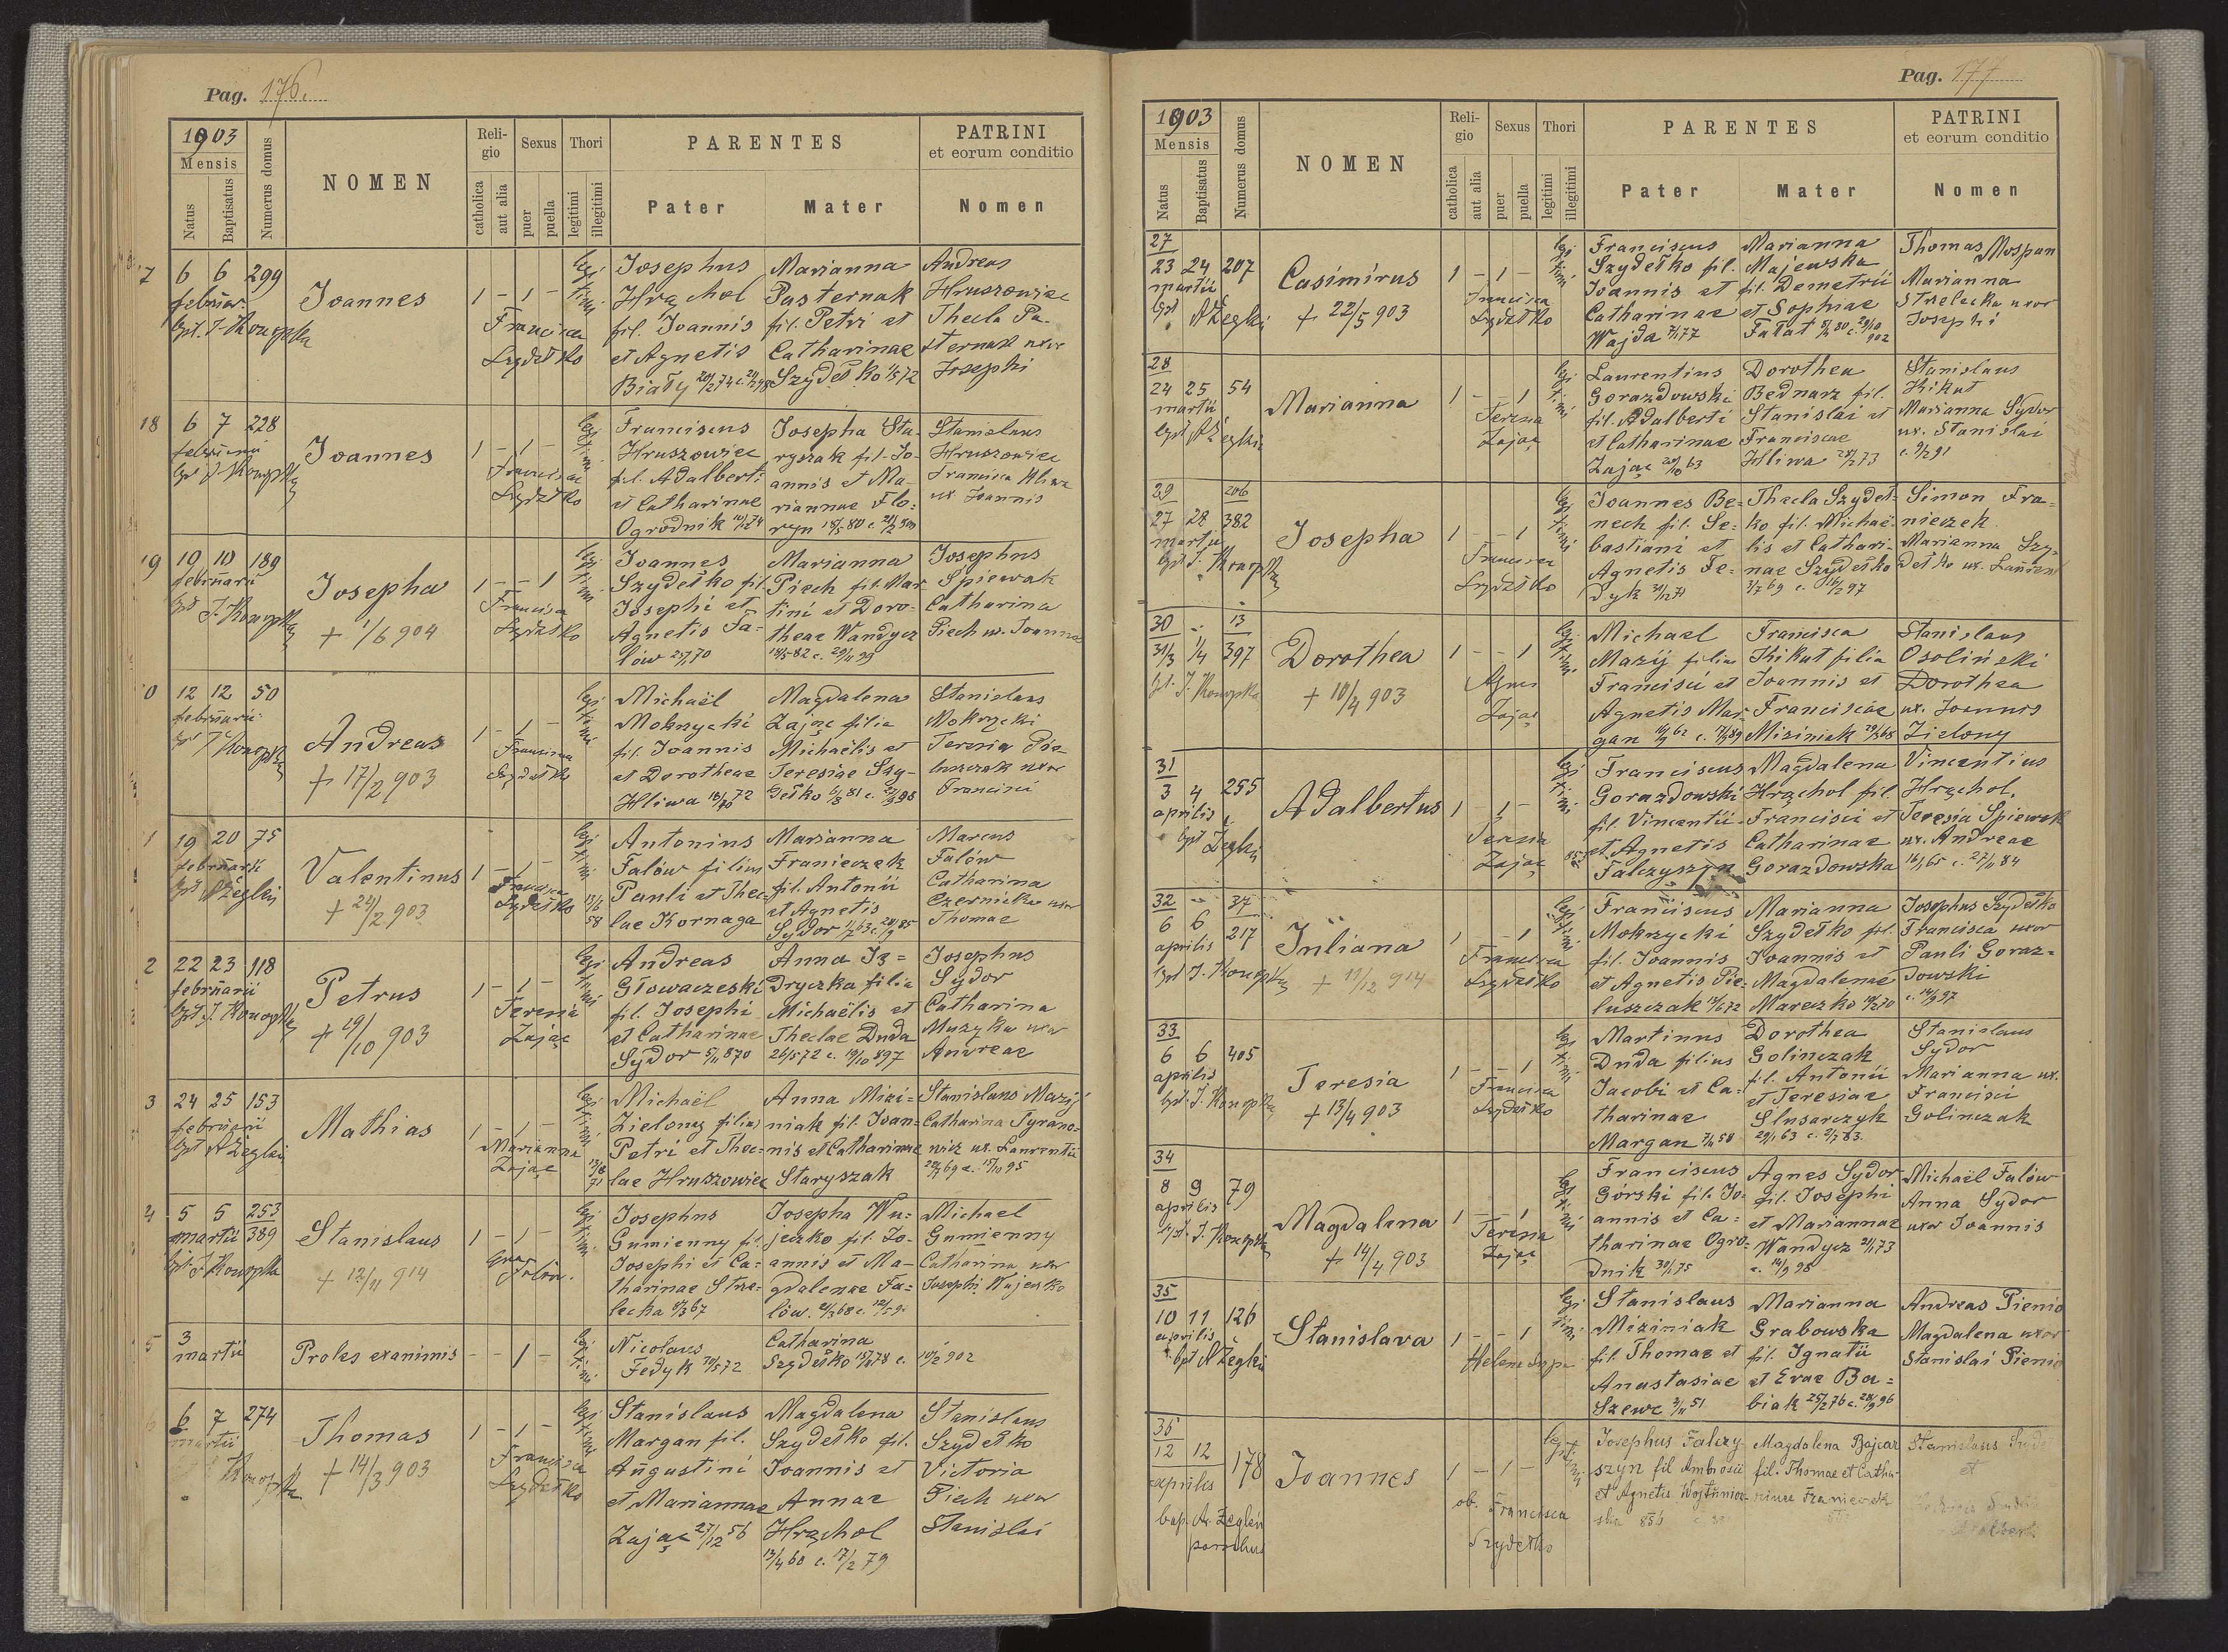 Pag. 176.
1903
Mensis
Natus
Baptisatus
Numerus domus
NOMEN
Religio
catholica
aut alia
Sexus
puer
puella
Thori
legitimi
illegitimi
PARENTES
Pater
Mater
PATRINI
et eorum conditio
Nomen
7
6 6 299
februar
bpt. J. Konopka
Joannes
1 - 1 -
Francisca
Szydełko
legi
timi
Josephus
Hrąchol
fil. Joannis
et Agnetis
Biały
Marianna
Pasternak
fil. Petri et
Catharinae
Szydełko
Andreas
Hruszowiec
Thecla Pa-
sternak uxor
Josephi
18
6 7 228
februarii
bpt J. Konopka
Joannes
1 - 1 -
Francisca
Szydełko
legi
timi
Franciscus
Hruszowiec
fil. Adalberti
et Catharinae
Ogrodnik
Josepha Sta-
ryszak fil. Jo-
annis et Ma-
riannae Flo-
ryn
Stanislaus
Hruszowiec
Francisca Hliwa
ux Joannis
19
10 10 189
februarii
bpt J. Konopka
Josepha
+ 1/6 904
1 - - 1
Francisca
Szydełko
legi
timi
Joannes
Szydełko fil.
Josephi et
Agnetis Fa-
lów 25/1 70
Marianna
Piech fil. Mar-
tini et Doro-
theae Wandycz
18/5 82 c. 29/11 99
Josephus
Spiewak
Catharina
Piech ux. Joannis
0
12 12 50
februarii
bpt J Konopka
Andreas
+ 17/2 903
1 - 1 -
Francisca
Szydełko
legi
timi
Michaël
Mokrzycki
fil. Joannis
et Dorotheae
Hliwa
Magdalena
Zając filia
Michaëlis et
Teresiae Szy-
dełko
Stanislaus
Mokrzycki
Teresia Pie-
luszczak uxor
Francisci
1
19 20 75
februarii
bpt A Żegleń
Valentinus
+ 24/2 903
1 - 1 -
Francisca
Szydełko
legi
timi
Antonius
Falów filius
Pauli et Thec-
lae Kornaga
Marianna
Franieczek
fil. Antonii
et Agnetis
Sydor
Marcus
Falów
Catharina
Czernicka uxor
Thomae
2
22 23 118
februarii
bpt J. Konopka
Petrus
+ 19/10 903
1 - 1 -
Teresia
Zając
legi
timi
Andreas
Głowaczeski
fil. Josephi
et Catharinae
Sydor 5/11 870
Anna Iz=
dryczka filia
Michaëlis et
Theclae Duda
26/5 72 c. 19/10 897
Josephus
Sydor
Catharina
Muzyka uxor
Andreae
3
24 25 153
februarii
bpt A Żegleń
Mathias
1 - 1 -
Marianna
Zając
legi
timi
Michaël
Zielony filius
Petri et Thec-
lae Hruszowiec
Anna Mizi=
niak fil. Joan-
nis et Catharinae
Staryszak
Stanislaus Mazij
Catharina Tyrano-
wicz ux. Laurentii
4
5 5 253
martii 389
bpt. J Konopka
Stanislaus
+ 12/11 914
1 - 1 -
Eva
Falów.
legi
timi
Josephus
Gumienny fil.
Josephi et Ca=
tharinae Strze-
lecka 8/3 67
Josepha Wu-
jeczko fil. Jo-
annis et Ma-
gdalenae Fa-
lów.
Michael
Gumienny
Catharina uxor
Josephi Wujeczko
5
3
martii
Proles exanimis
- - 1 -
legi
timi
Nicolaus
Fedyk 10/5 72
Catharina
Szydełko 15/11 78 c.
10/2 902
6
6 7 274
martii
Konopka
Thomas
+ 14/3 903
1 - 1 -
Francisca
Szydełko
legi
timi
Stanislaus
Margan fil.
Augustini
et Mariannae
Zając 27/12 56
Magdalena
Szydełko fil.
Joannis et
Annae
Hrąchol
13/4 60 c. 17/2 79
Stanislaus
Szydełko
Victoria
Piech uxor
Stanislai
Pag. 177
1903
Mensis
Natus
Baptisatus
Numerus domus
NOMEN
Religio
catholica
aut alia
Sexus
puer
puella
Thori
legitimi
illegitimi
PARENTES
Pater
Mater
PATRINI
et eorum conditio
Nomen
27
23 24 207
martii
bpt A Żegleń
Casimirus
+ 22/5 903
1 - 1 -
Francisca
Szydełko
legi
timi
Franciscus
Szydełko fil.
Joannis et
Catharinae
Wajda
Marianna
Majewska
fil. Demetrii
et Sophiae
Fałat
Thomas Mospan
Marianna
Strzelecka uxor
Josephi
28
24 25 54
martii
bpt A Żegleń
Marianna
1 - - 1
Teresia
Zając
legi
timi
Laurentius
Gorazdowski
fil. Adalberti
et Catharinae
Zając
Dorothea
Bednarz fil.
Stanislai et
Franciscae
Hliwa
Stanislaus
Kikut
Marianna Sydor
ux. Stanislai
29
27 28 206 382
martii
bpt J. Konopka
Josepha
1 - - 1
Francisca
Szydełko
legi
timi
Joannes Be-
nech fil. Se=
bastiani et
Agnetis Fe-
dyk
Thecla Szydeł-
ko fil. Michaë-
lis et Cathari-
nae Szydełko
3/7 69 c. 16/2 97
Simon Fra-
nieczek
Marianna Szy-
dełko ux. Laurent
30
31/3 1/4 13 397
bpt. J. Konopka
Dorothea
+ 10/4 903
1 - - 1
Agnes
Zając
legi
timi
Michael
Mazij filius
Francisci et
Agnetis Mar-
gan
Francisca
Kikut filia
Joannis et
Franciscae
Miziniak
Stanislaus
Osoliński
Dorothea
ux. Joannis
Zielony
31
3 4 255
aprilis
bpt Żegleń
Adalbertus
1 - 1 -
Teresia
Zając
legi
timi
Franciscus
Gorazdowski
fil. Vincentii
et Agnetis
Falczyszyn
Magdalena
Hrąchol fil.
Francisci et
Catharinae
Gorazdowska
Vincentius
Hrąchol.
Teresia Spiewak
ux. Andreae
16/1 65 c. 27/11 84
32
6 6 37 217
aprilis
bpt J. Konopka
Juliana
+ 11/12 914
1 - 1
Francisca
Szydełko
legi
timi
Franciscus
Mokrzycki
fil. Joannis
et Agnetis Pie-
luszczak
Marianna
Szydełko fil.
Joannis et
Magdalenae
Mareczko
Josephus Szydełko
Francisca uxor
Pauli Goraz=
dowski
33
6 6 405
aprilis
bpt. J. Konopka
Teresia
+ 13/4 903
1 - - 1
Francisca
Szydełko
legi
timi
Martinus
Duda filius
Jacobi et Ca-
tharinae
Margan
Dorothea
Golinczak
fil. Antonii
et Teresiae
Slusarczyk
Stanislaus
Sydor
Marianna ux.
Francisci
Golinczak
34
8 9 79
aprilis
bpt. J. Konopka
Magdalena
+ 14/4 903
1 - - 1
Teresia
Zając
legi
timi
Franciscus
Górski fil. Jo-
annis et Ca=
tharinae Ogro-
dnik
Agnes Sydor
fil. Josephi
et Mariannae
Wandycz 21/1 73
Michaël Falów
Anna Sydor
uxor Joannis
35
10 11 126
aprilis
bpt A Żegleń
Stanislava
1 - - 1
Helena
legi
timi
Stanislaus
Miziniak
fil. Thomae et
Anastasiae
Szewc
Marianna
Grabowska
fil. Ignatii
et Evae Ba=
biak
Andreas Pienio
Magdalena uxor
Stanislai Pienio
36
12 12 178
aprilis
bap. A. Żegleń
parochus
Joannes
1 - 1 -
ob. Francisca
Szydełko
legi
timi
Josephus Falczy-
szyn fil Ambrosii
et Agnetis
Magdalena Bajcar
fil. Thomae et Catha-
rinae Franieczek
Stanislaus
et